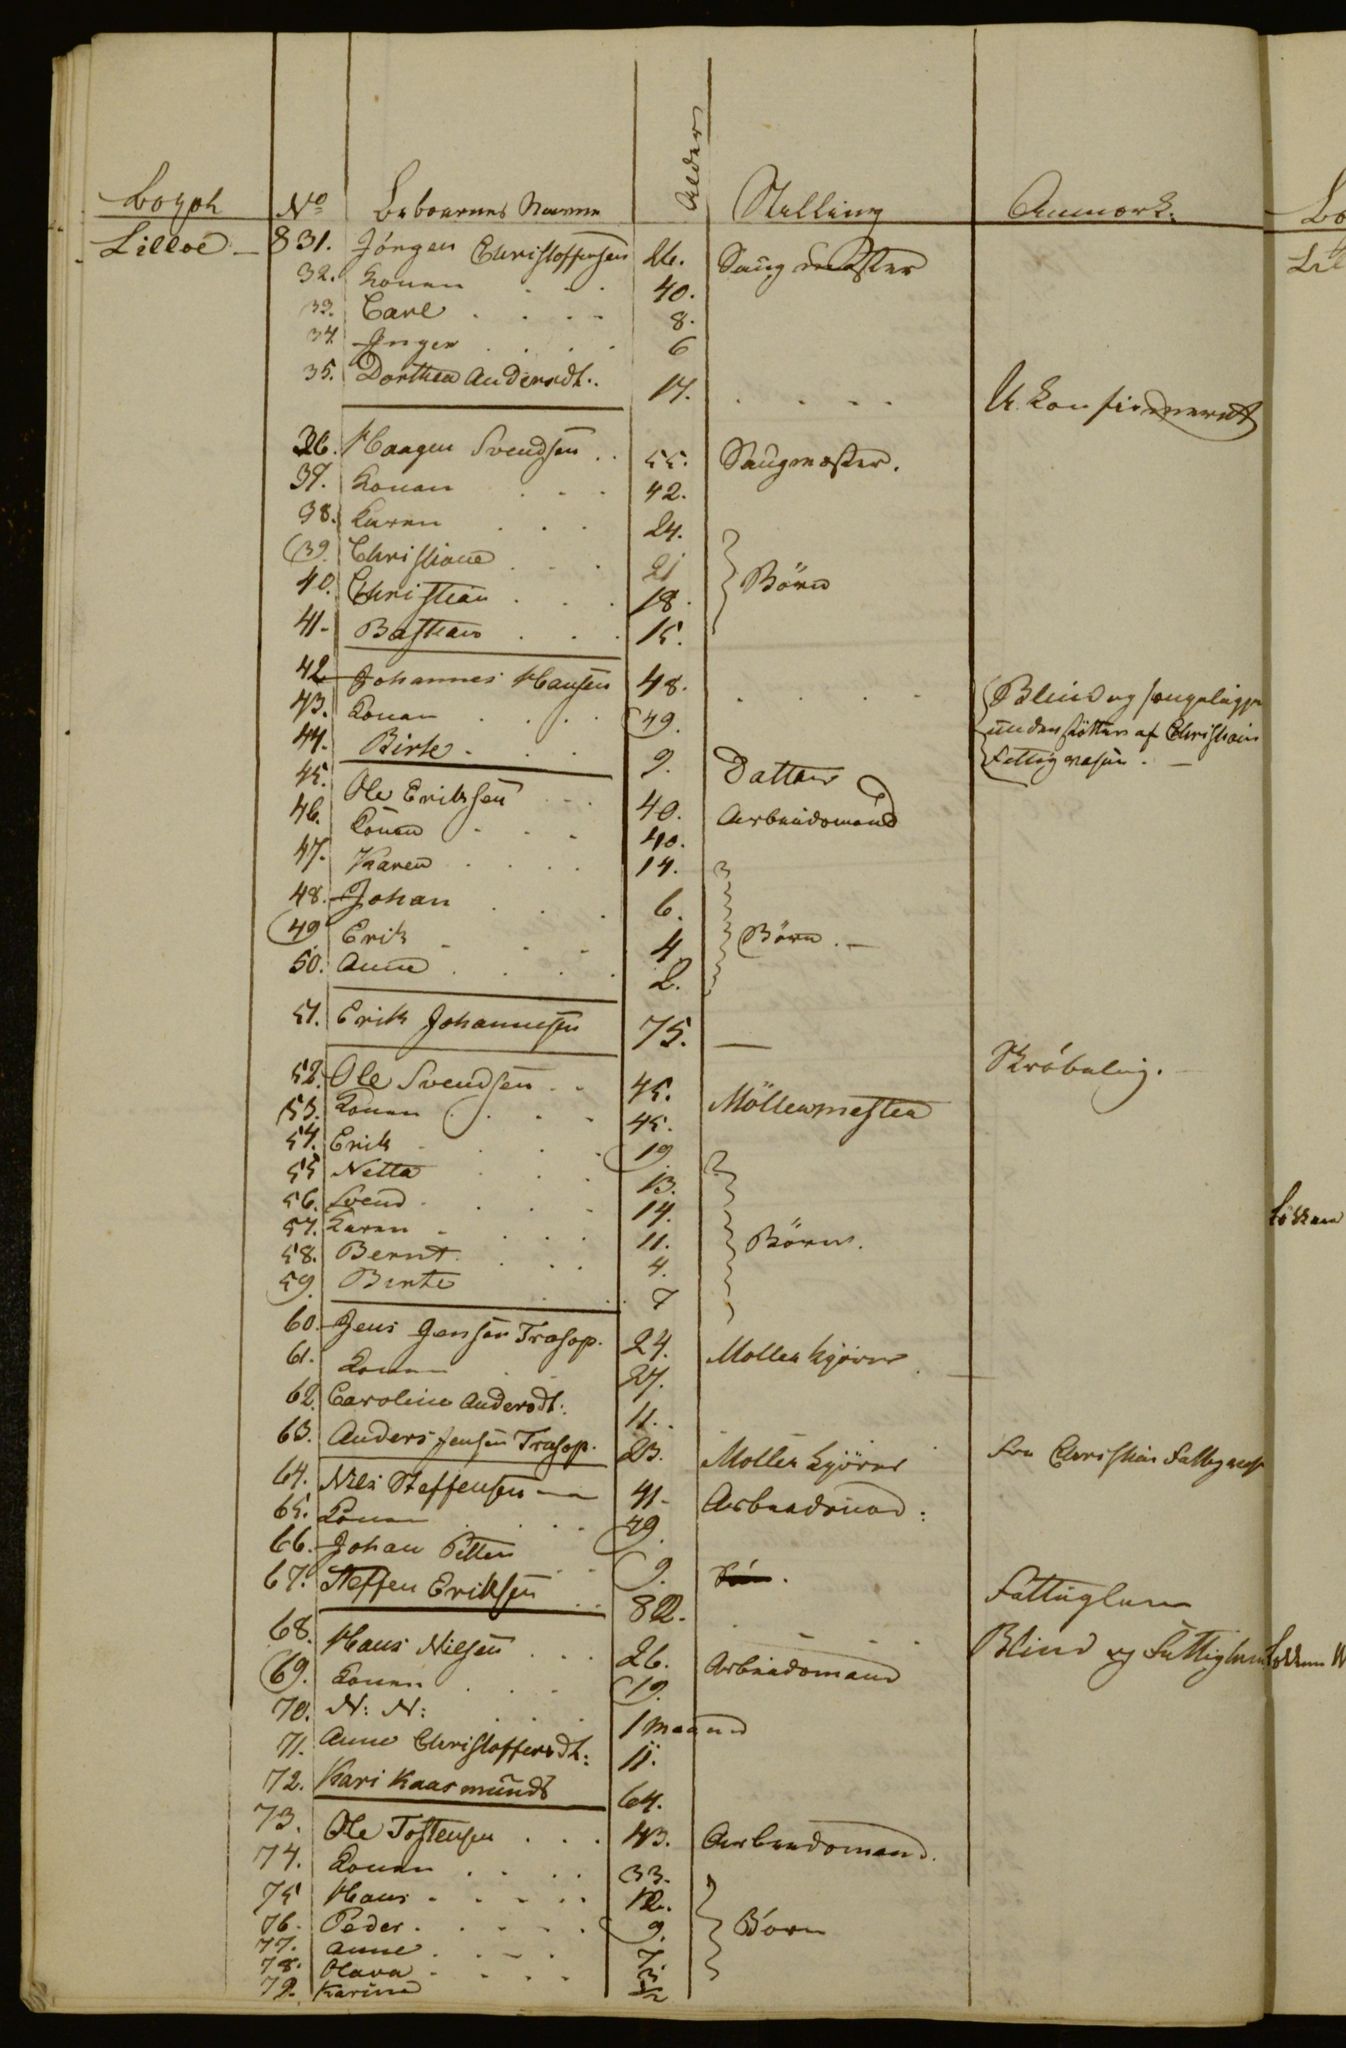 Bopæl No Beboernes Navne Alder Stilling Anmærk.
Lilloe – 831. Jörgen Christoffersen 26. Saugmester
32. Konen . . . 40.
33. Carl . . . . 8.
34. Inger . . . . 6
35. Dorthea Andersdt. . 17. . . . . U. Konfirmeret
36. Haagen Svendsen . . 55. Saugmester.
37. Konen . . . 42.
38. Karen . . . 24.
39. Christiane . . . 21 Börn
40. Christian . . . 18.
41. Bastian . . . 15.
42 Johannes Hansen 48. . . . . Blind og sengeliggende
43. Konen . . . . 49. understöttes af Christiania
44. Birte . . . 9. Datter Fattigvæsen. –
45. Ole Eriksen . . . 40. Arbeidsmand
46. Konen . . . 40.
47. Karen . . . . 14.
48. Johan . . . 6.
49 Erik . . . 4 Börn. –
50. Anne . . . . 2.
51. Erik Johannesen 75. — Skröbelig.
52. Ole Svendsen . . 45. Möllermester
53. Konen . . . . 45.
54. Erik . . . . 19
55 Netta . . . 13.
56. Svend . . . . 14.
57. Karen . . . . 11. Börn.
58. Bernt . . . . 4.
59. Birte . . . 7
60. Jens Jensen Trasop. 24. Möllekjörer
61. Konen . . 27.
62. Caroline Andersdt. 11. .
63. Anders Jensen Trasop. 23. Möllekjörer Fra Christian Fattigvæs
64. Niels Steffensen — 41. Arbeidsmand.
65. Konen . . . . 49.
66. Johan Petter . . 9. Sön.
67. Steffen Eriksen . . 82. . . . Fattiglem
68. Hans Nielsen . . . 26. Arbeidsmand Blind og Fattiglem
69. Konen . . . 19.
70. N: N: . . . . 1 maaned
71. Anne Christoffersdt: 11.
72. Kari Kaasmunds 64.
73. Ole Tostensen . . . 43. Arbeidsmand.
74. Konen . . . . 33.
75 Hans . . . . . 12.
76. Peder . . . . . 9. Börn
77. Anne . . . . 7.
78. Olava . . . . 3.
79. Karine ½